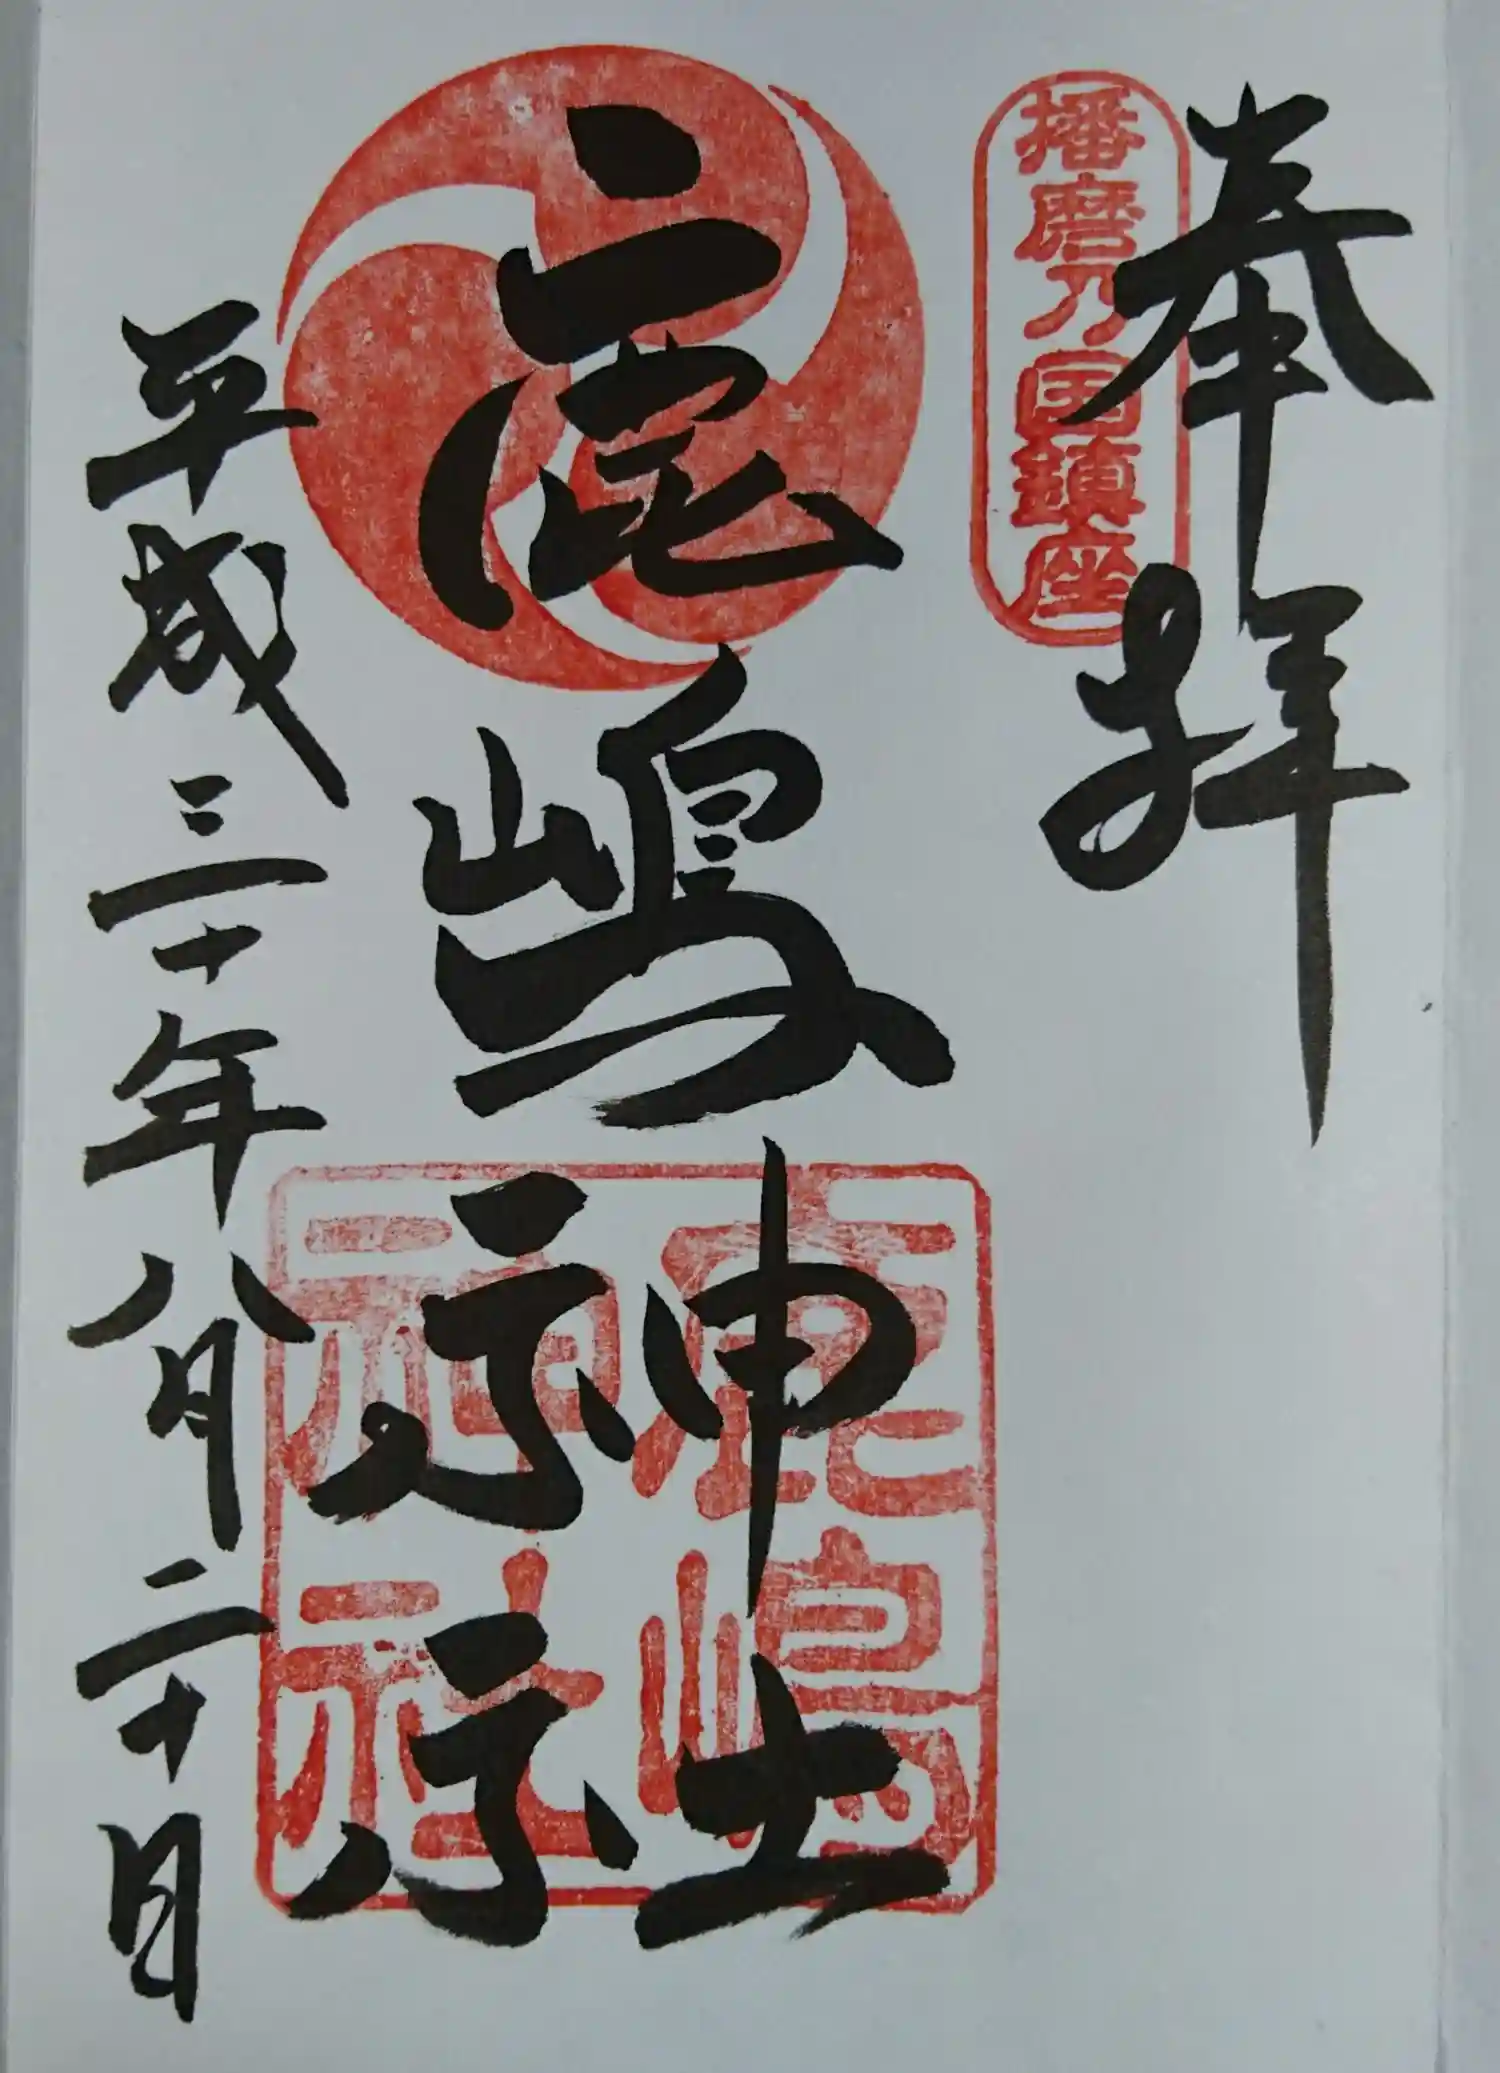 奉拝
播磨乃国鎮座
鹿嶋神社
鹿嶋
神社
平成三十年八月二十日